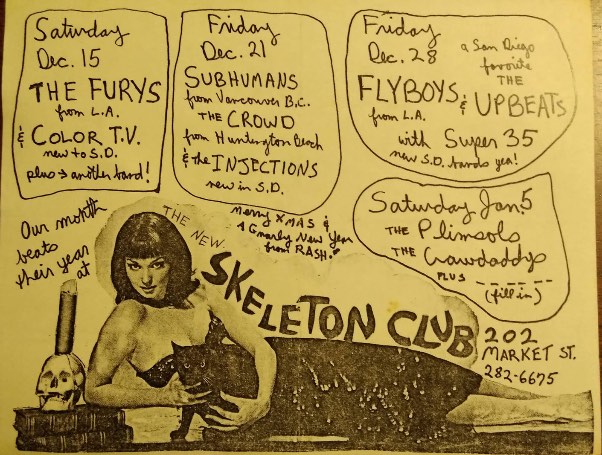 Saturday
Dec. 15
THE FURYS
from L.A.
& COLOR T.V.
new to S.D.
plus → another band!
Friday
Dec. 21
SUBHUMANS
from Vancouver B.C.
THE CROWD
from Huntington Beach
& the INJECTIONS
new in S.D.
Friday
Dec. 28
a San Diego
favorite
THE
FLYBOYS & UPBEATS
from L.A.
with Super 35
new S.D. bands yea!
Saturday Jan. 5
THE Plimsols
THE Crawdaddys
PLUS _ _ _ _ _ _
(fill in)
Our month
beats
their year
at
Merry XMAS &
A Gnarly New Year
from RASH.
THE NEW
SKELETON CLUB
202
MARKET ST.
282-6675